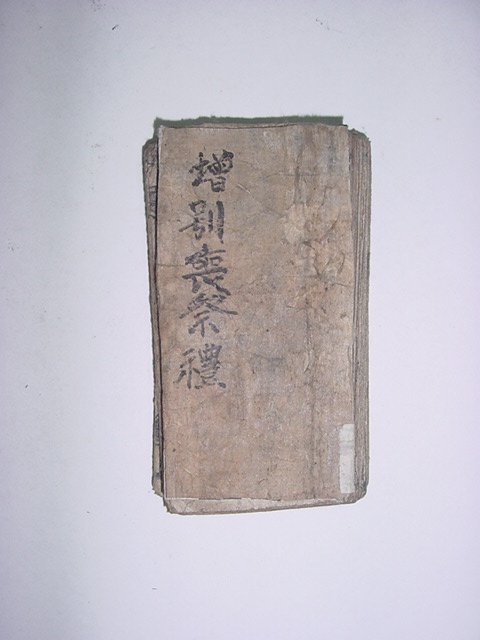 增别喪祭禮